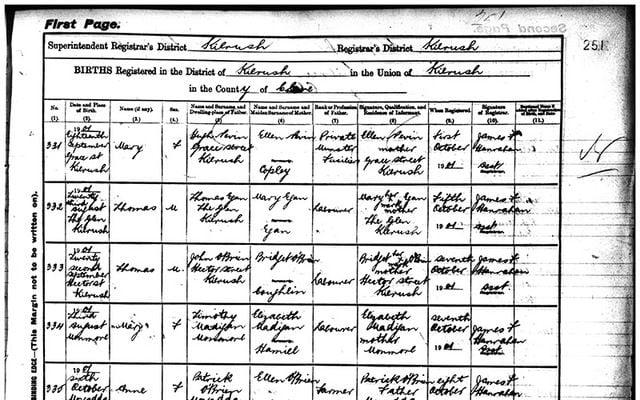 First Page.
251
Superintendent Registrar's District Kilrush Registrar's District Kilrush
BIRTHS Registered in the District of Kilrush in the Union of Kilrush
in the County of Clare
No. Date and Place of Birth Name (if any). Sex. Name and Surname and Dwelling-place of Father Name and Surname and Maiden Surname of Mother Rank or Profession of Father Signature, Qualification, and Residence of Informant. When Registered. Signature of Registrar.
(1.) (2.) (3.) (4.) (5.) (6.) (7.) (8.) (9.) (10.) (11.)
331 1901 Eighteenth September Grace St Kilrush Mary F Hugh Grace street Kilrush Ellen Copley Private Munster Fusiliers Ellen mother Grace street Kilrush First October 1901 James F Hanrahan
332 1901 Twenty third August The Glen Kilrush Thomas M Thomas Egan The Glen Kilrush Mary Egan Egan Labourer Mary Egan her mark mother The Glen Kilrush Fifth October 1901 James F Hanrahan
333 1901 Twenty second September Hector St Kilrush Thomas M John O'Brien Hector street Kilrush Bridget O'Brien Coughlin Labourer Bridget O'Brien her mark mother Hector street Kilrush seventh October 1901 James F Hanrahan
334 1901 Third August Monmore Mary F Timothy Madigan Monmore Elizabeth Madigan Hamill Labourer Elizabeth Madigan mother Monmore seventh October 1901 James F Hanrahan
335 1901 sixth October Anne F Patrick O'Brien Ellen O'Brien Farmer Patrick O'Brien Father eight October James F Hanrahan
BINDING EDGE—(This Margin not to be written on).